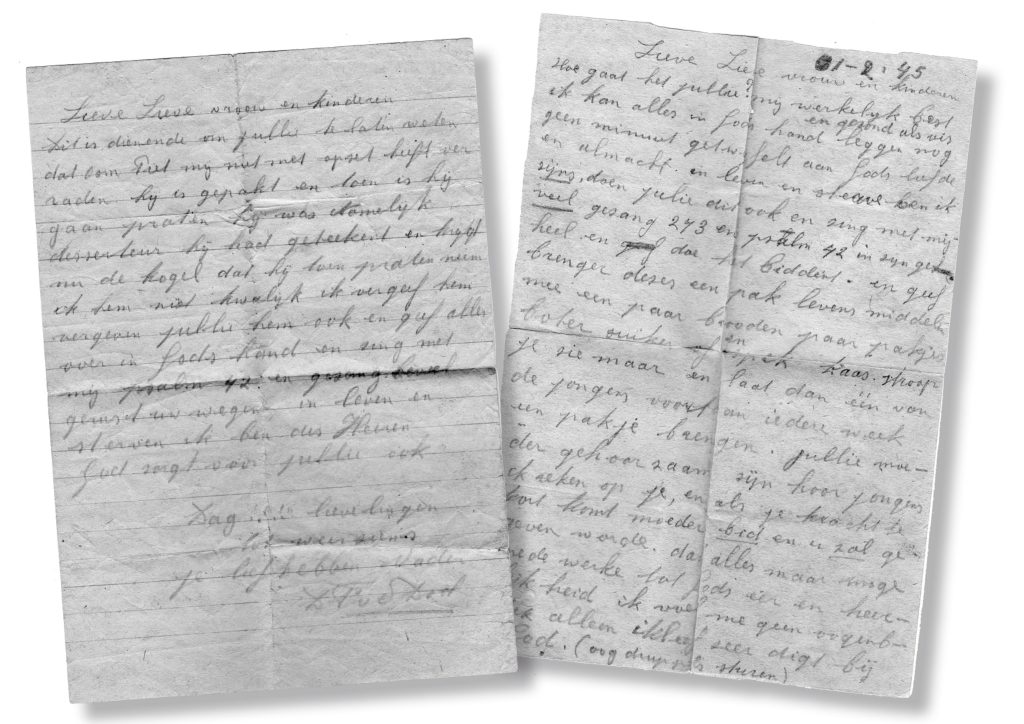 Lieve Lieve vrouw en kinderen
Dit is dienende om jullie te laten weten
dat oom Piet mij niet met opset heeft ver
raden hij is gepakt en toen is hij
gaan praten hij was namelijk
desserteur hij had geteekent en krijgt
nu de kogel dat hij toen praten neem
ik hem niet kwalijk ik vergeef hem
vergeven jullie hem ook en geef alles
over in Gods hand en zing met
mij psalm 42. en gezang
gerust uw wegen in leven en
sterven ik ben des Heeren
God zorgt voor jullie ook
Dag lievelingen
tot weerziens
je liefhebben vader
31-2-45
Lieve Lieve vrouw en kinderen
Hoe gaat het jullie? mij werkelijk best
en gezond als vis
ik kan alles in Gods hand leggen nog
geen minuut getwijfelt aan Gods liefde
en almacht. in leven en sterve ben ik
zijns, doen julie dit ook en zing met mij
veil gezang 273 en psalm 42 in zyn ge-
heel en doe tot biddent. en geef
brenger deses een pak levens middele
mee een paar brooden paar pakjes
boter suiker en spek Kaas. stroop
je sie maar en laat dan één van
de jongens voortaan iedere week
een pakje brengen. jullie moe-
der gehoorzaam zijn hoor jongens
ik reken op je, en als je kracht te
kort komt moeder bid en u zal ge-
geven worde. dat alles maar mage
mede werke tot Gods eer en heer-
lijkheid ik voel me geen oogenb-
lik alleen ik leef zeer digt bij
God. (oog druppels sturen)